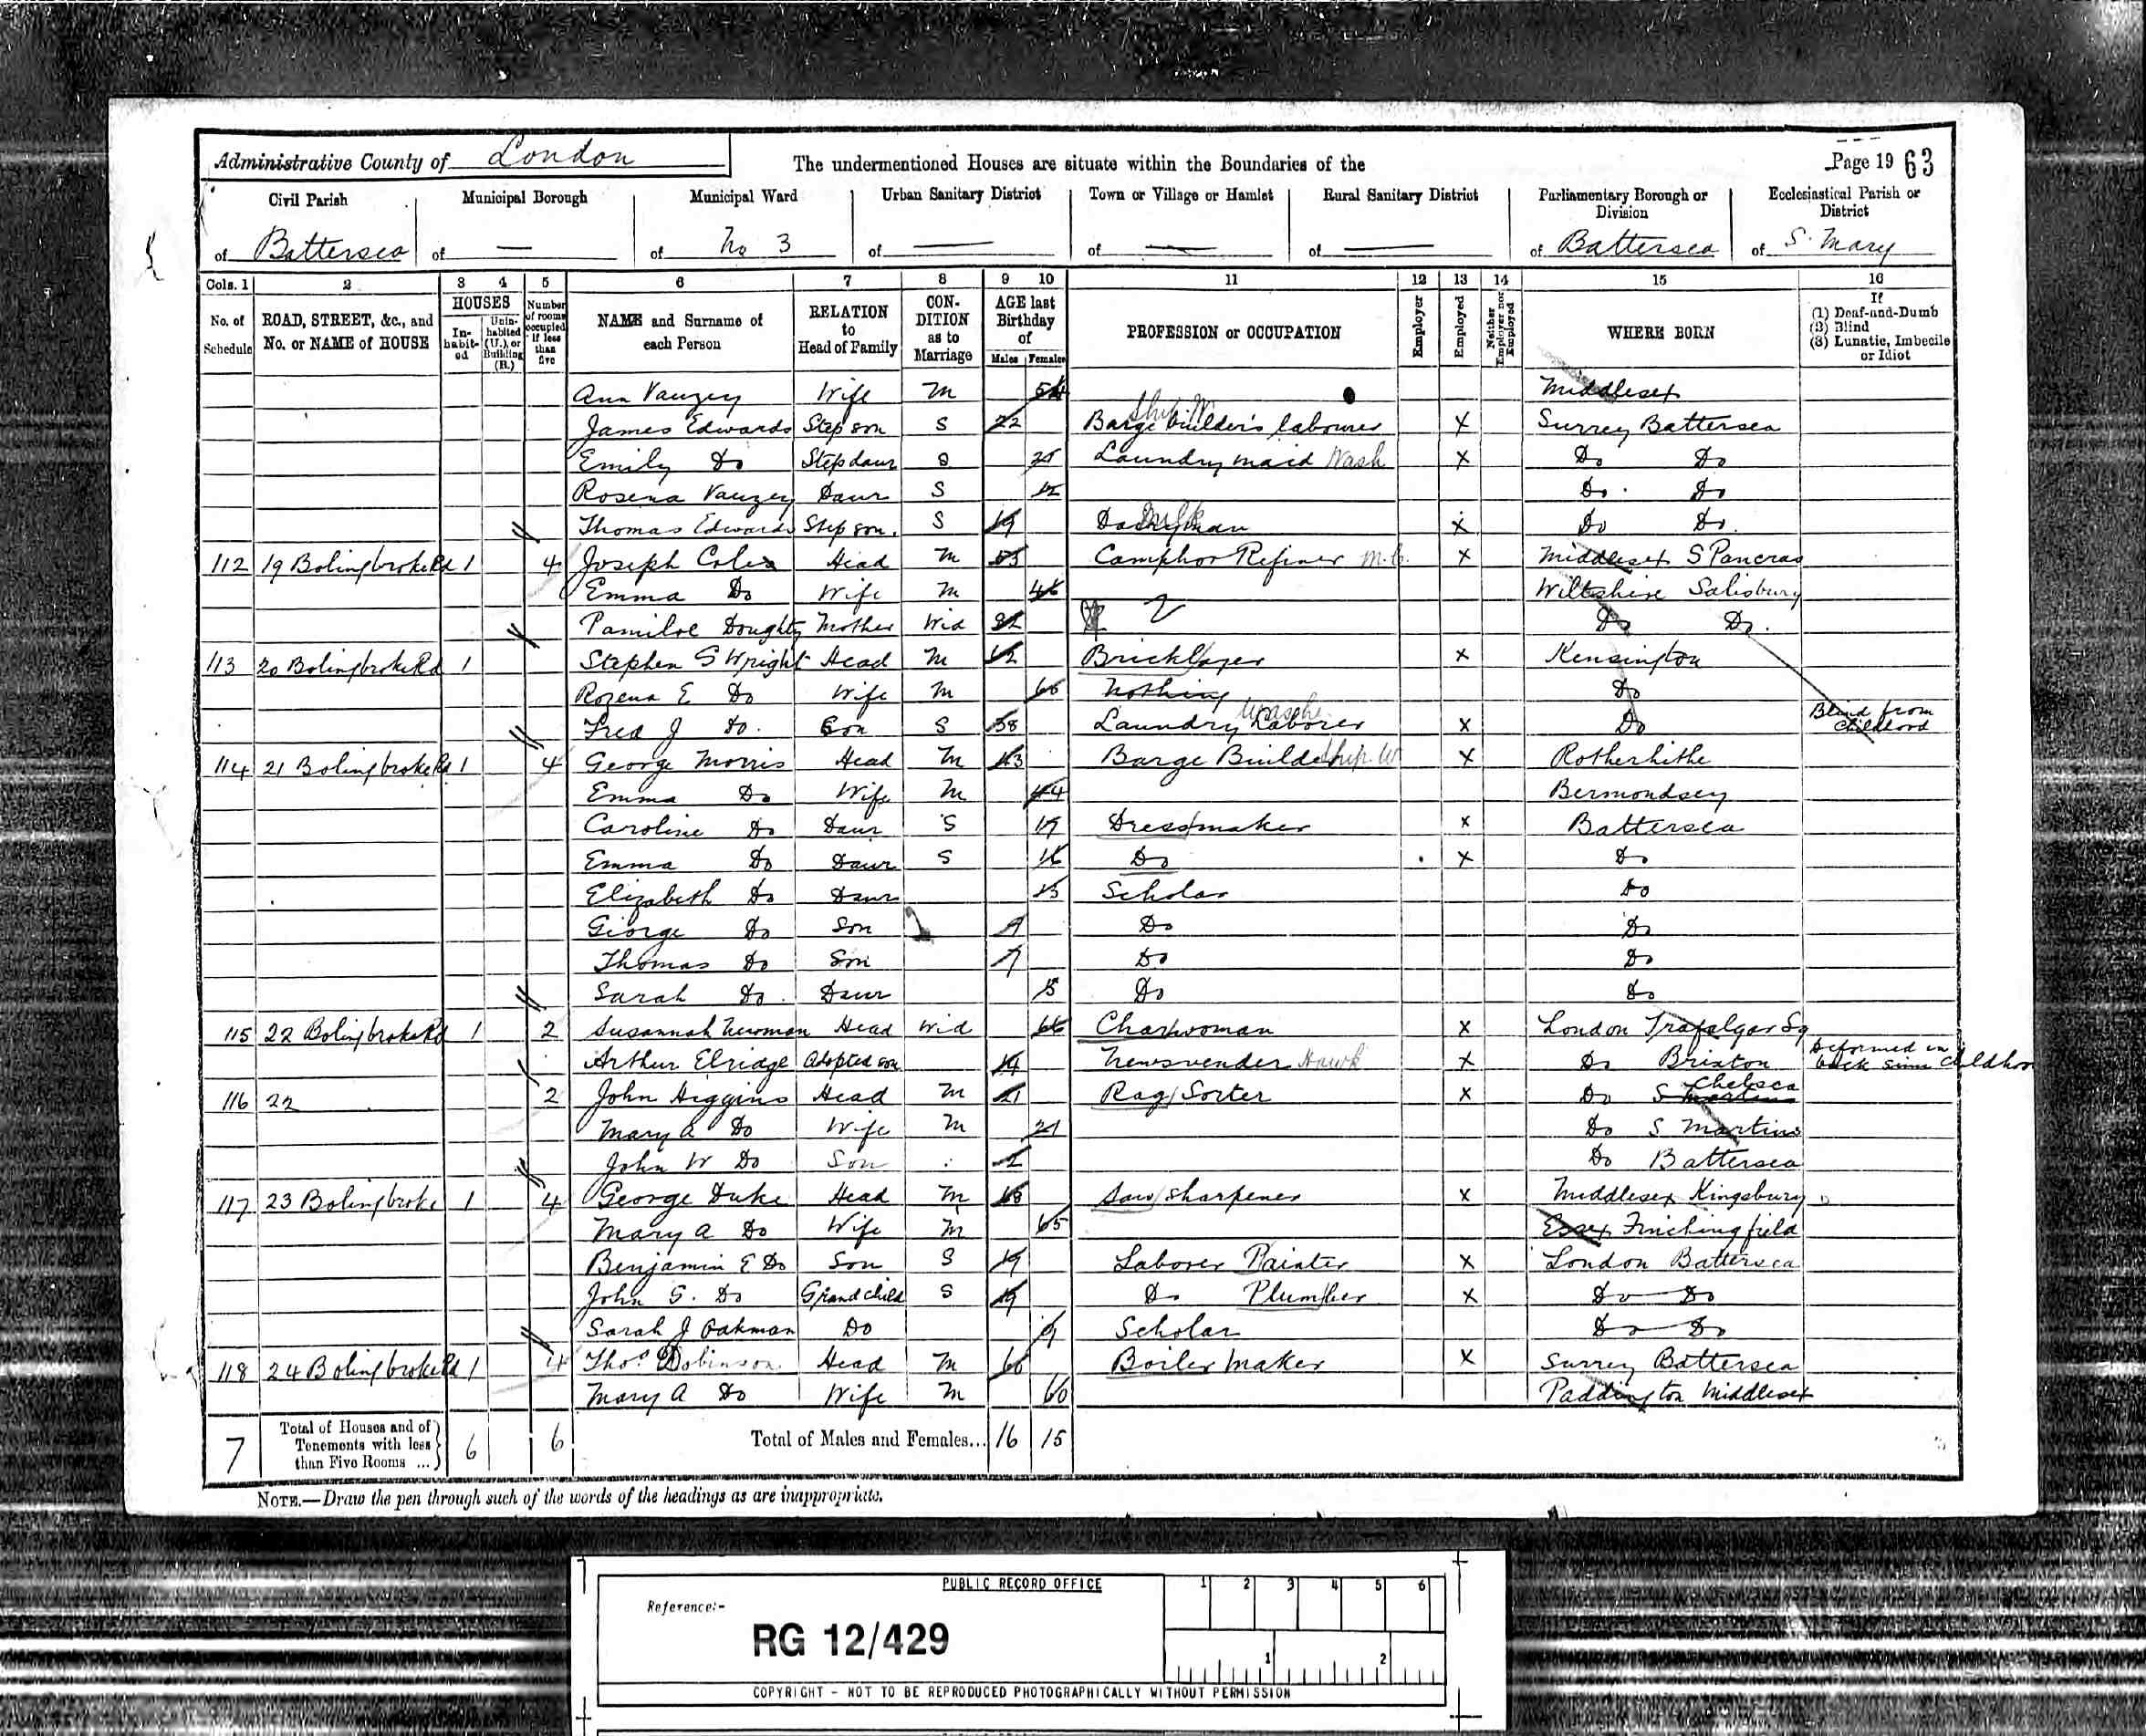 Administrative County of London
The undermentioned Houses are situate within the Boundaries of the
Page 19 63
Civil Parish Municipal Borough Municipal Ward Urban Sanitary District Town or Village or Hamlet Rural Sanitary District Parliamentary Borough or Division Ecclesiastical Parish or District
of Battersea of — of No 3 of — of — of — of Battersea of S. Mary
Cols. 1 2 3 4 5 6 7 8 9 10 11 12 13 14 15 16
No. of Schedule ROAD, STREET, &c., and No. or NAME of HOUSE HOUSES Inhabited Uninhabited (U.), or Building (B.) Number of rooms occupied if less than five NAME and Surname of each Person RELATION to Head of Family CONDITION as to Marriage AGE last Birthday of Males Females PROFESSION or OCCUPATION Employer Employed Neither Employer nor Employed WHERE BORN If (1) Deaf-and-Dumb (2) Blind (3) Lunatic, Imbecile or Idiot
Ann Vauzey Wife M 54 Middlesex
James Edwards Step son S 22 Barge builder's labourer Ship W X Surrey Battersea
Emily Do Stepdaur S 25 Laundry maid Wash X Do Do
Rosena Vauzey Daur S 12 Do Do
Thomas Edwards Step son. S 19 Dairyman Milk X Do Do.
112 19 Bolingbroke Rd 1 4 Joseph Coles Head M 53 Camphor Refiner M.C. X Middlesex S Pancras
Emma Do Wife M 46 Wiltshire Salisbury
Doughty Mother Wid 82 Do Do.
113 20 Bolingbroke Rd 1 Stephen S Wright Head M 62 Bricklayer X Kensington
Rozena E Do Wife M 66 Nothing Do
Fred J Do. Son S 38 Laundry Laborer Washe X Do Blind from Childhood
114 21 Bolingbroke Rd 1 4 George Morris Head M 43 Barge Builder Ship. W X Rotherhithe
Emma Do Wife M 44 Bermondsey
Caroline Do Daur S 19 Dressmaker X Battersea
Emma Do Daur S 16 Do X Do
Elizabeth Do Daur 13 Scholar Do
George Do Son 9 Do Do
Thomas Do Son 7 Do Do
Sarah Do. Daur 5 Do Do
115 22 Bolingbroke Rd 1 2 Susannah Newman Head Wid 66 Charwoman X London Trafalgar Sq
Arthur Elridge Adopted son 14 Newsvender Hawk X Do Brixton Deformed in back since childhoo
116 22 2 John Higgins Head M 21 Rag Sorter X Do S Martins Chelsea
Mary A Do Wife M 21 Do S Martins
John W Do Son 2 Do Battersea
117 23 Bolingbroke 1 4 George Duke Head M 68 Saw sharpener X Middlesex Kingsbury
Mary A Do Wife M 65 Essex Finchingfield
Benjamin E Do Son S 19 Laborer Painter X London Battersea
John G. Do Grandchild S 19 Do Plumber X Do Do
Sarah J Oakman Do 9 Scholar Do Do
118 24 Bolingbroke Rd 1 4 Thos. Dobinson Head M 66 Boiler Maker X Surrey Battersea
Mary A Do Wife M 60 Paddington Middlesex
7 Total of Houses and of Tenements with less than Five Rooms ... 6 6 Total of Males and Females... 16 15
NOTE.—Draw the pen through such of the words of the headings as are inappropriate.
PUBLIC RECORD OFFICE 1 2 3 4 5 6
Reference:-
RG 12/429
1 2
COPYRIGHT - NOT TO BE REPRODUCED PHOTOGRAPHICALLY WITHOUT PERMISSION